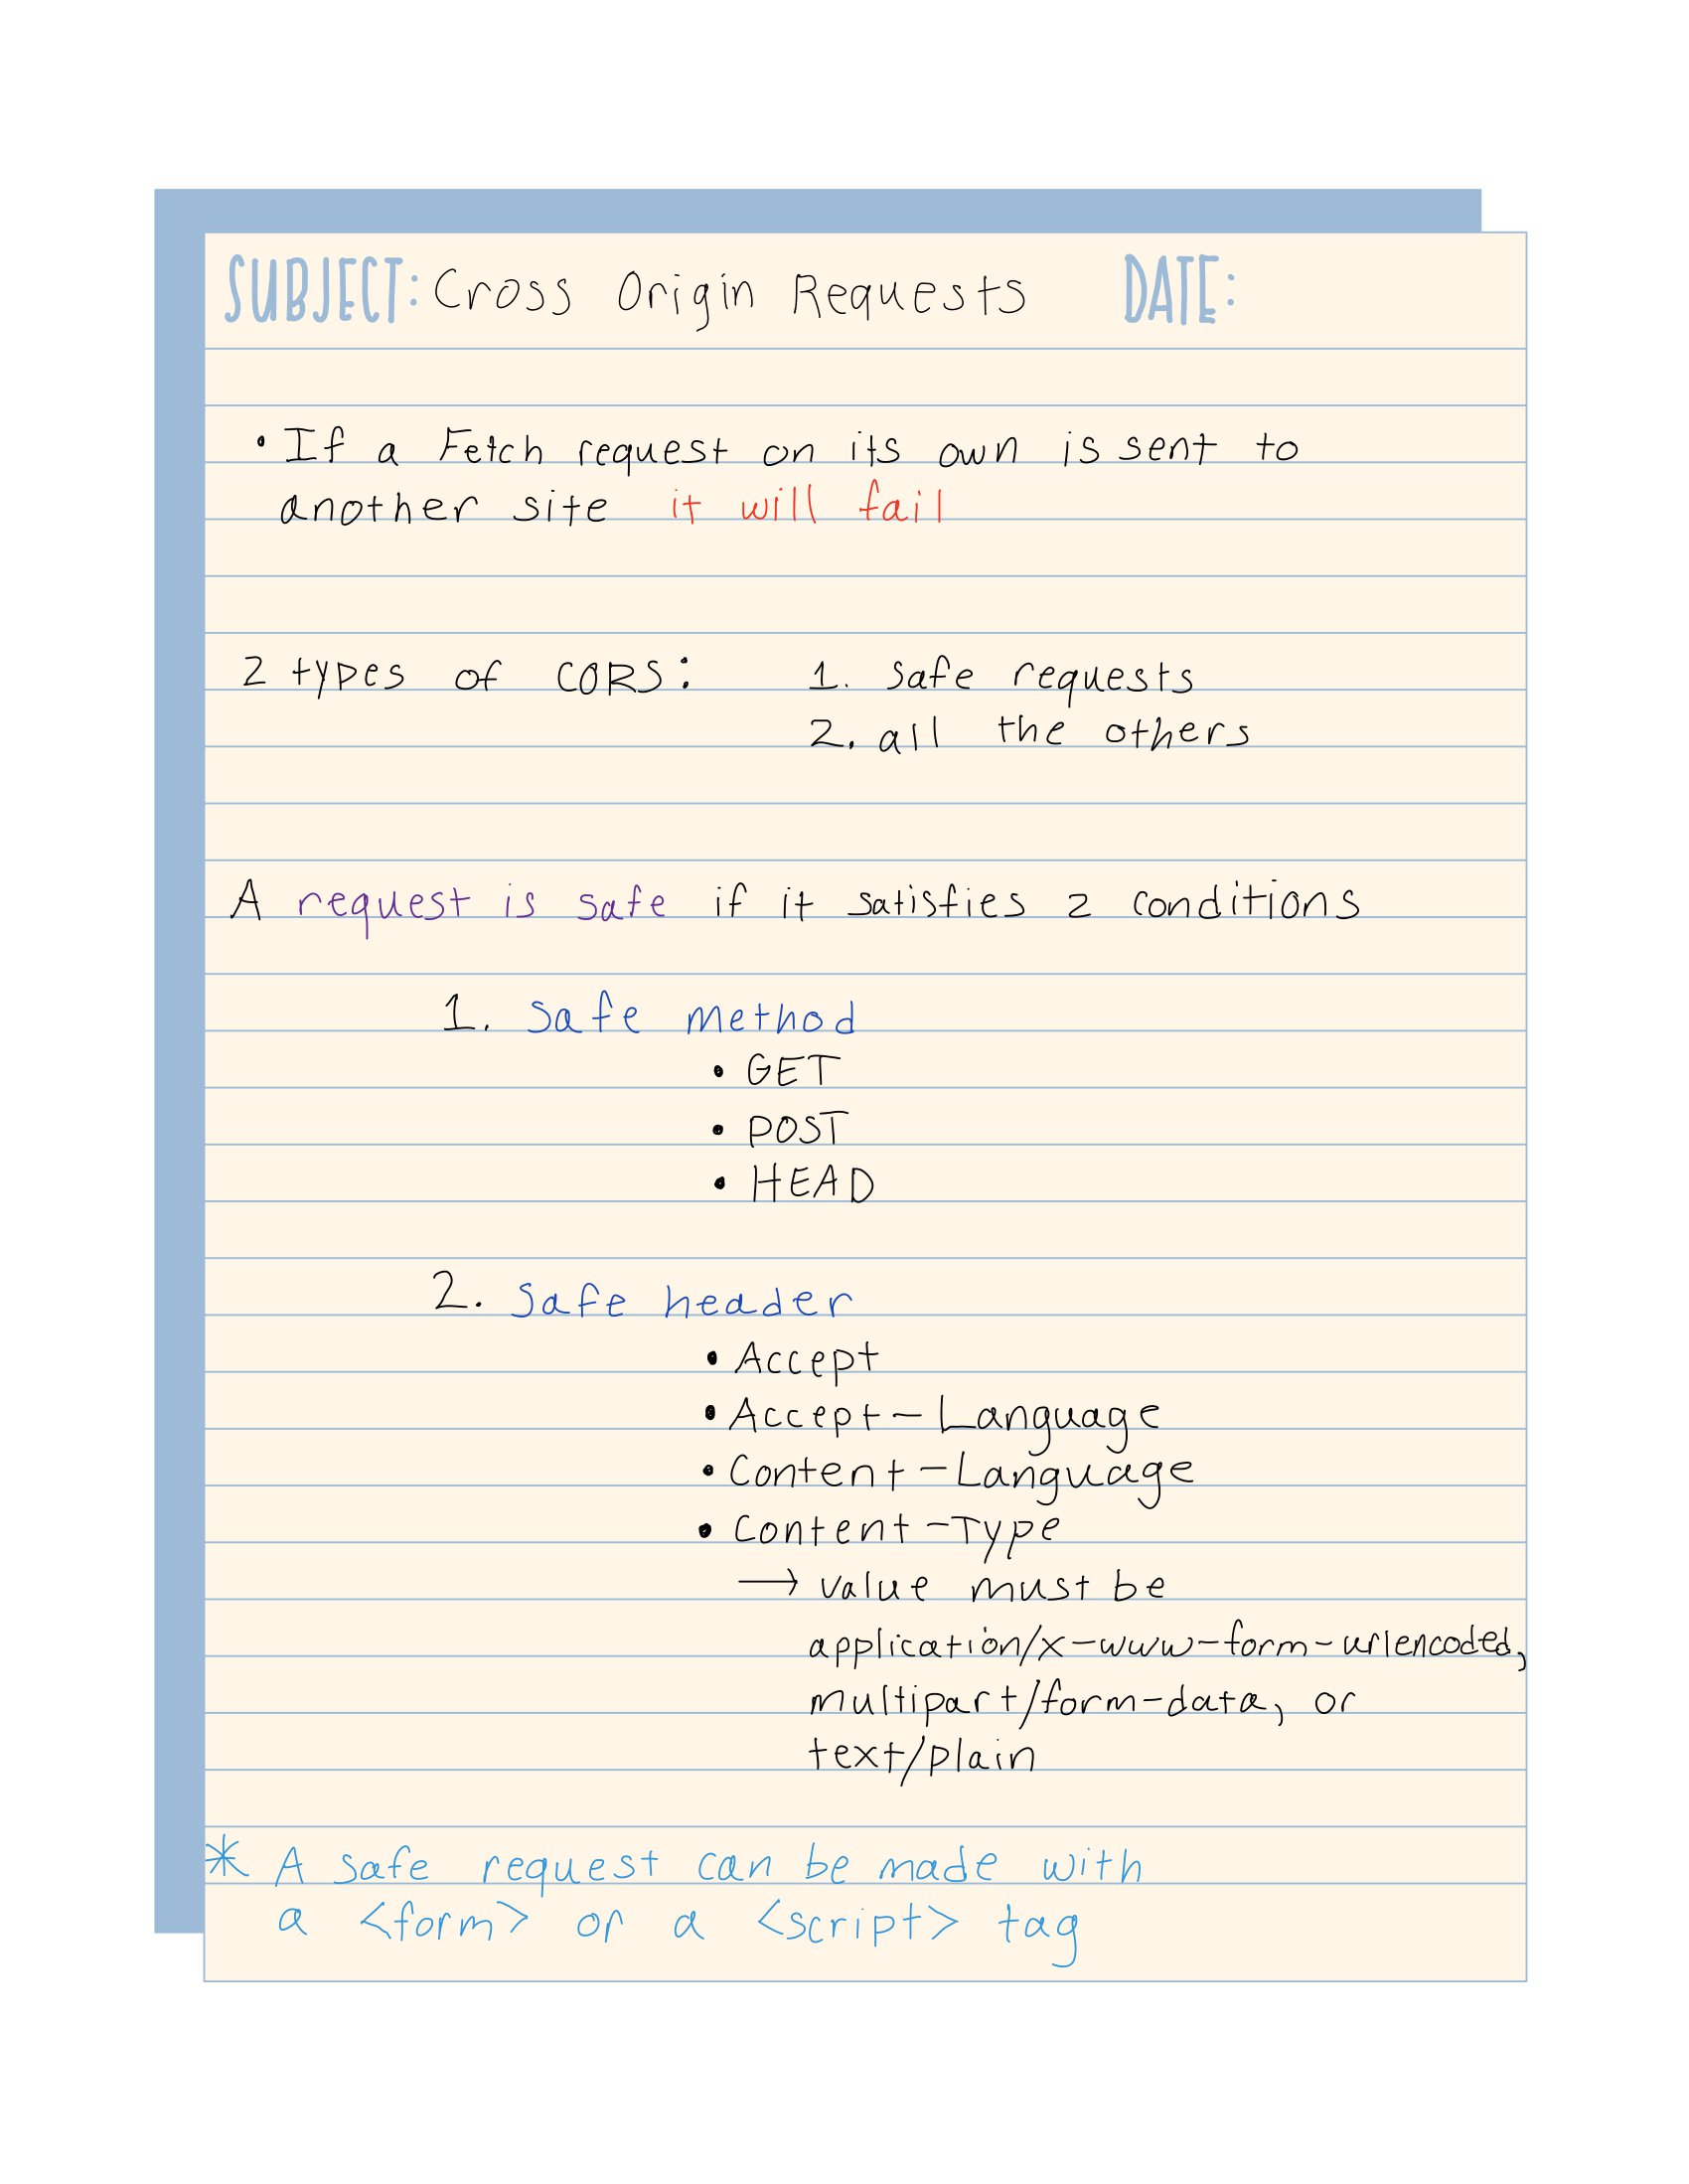 SUBJECT: Cross Origin Requests DATE:
• If a Fetch request on its own is sent to
another site it will fail
2 types of CORS: 1. safe requests
2. all the others
A request is safe if it satisfies 2 conditions
1. Safe method
• GET
• POST
• HEAD
2. Safe header
• Accept
• Accept-Language
• Content-Language
• Content-Type
→ value must be
application/x-www-form-urlencoded,
multipart/form-data, or
text/plain
* A safe request can be made with
a <form> or a <script> tag